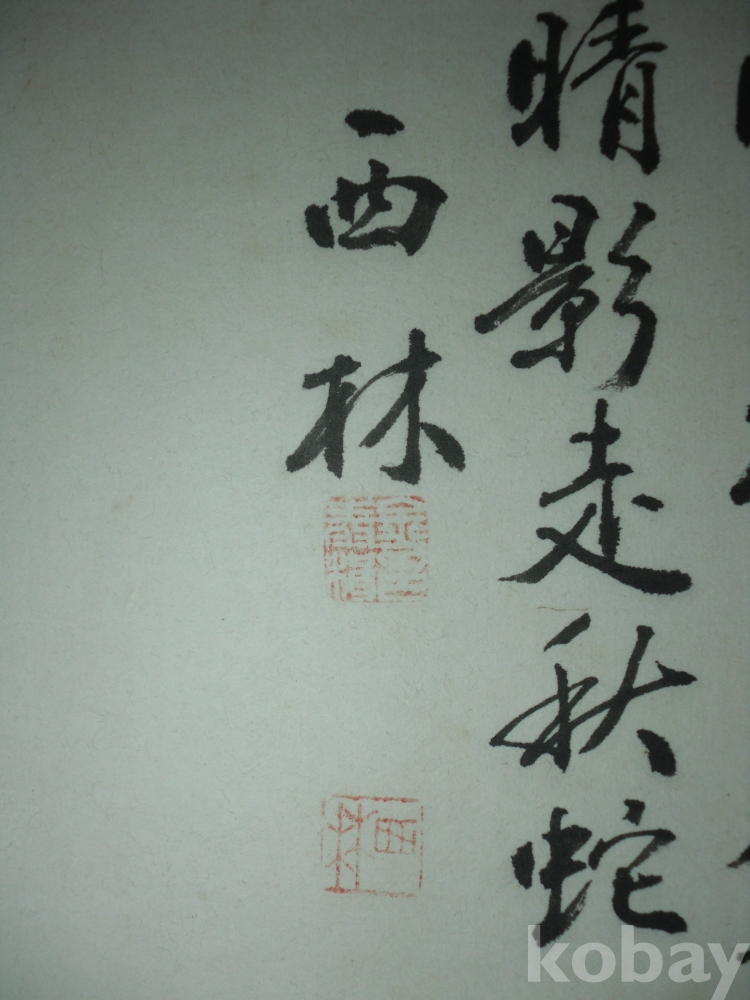 晴影走秋蛇
西林
西林
kobay